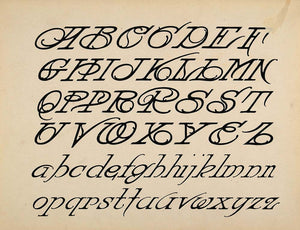 ABCDEF
GHIJKLLMN
OPPRRSST
UVWXYEZ
abcdefghijklmn
opqrsttuuvwxyzz